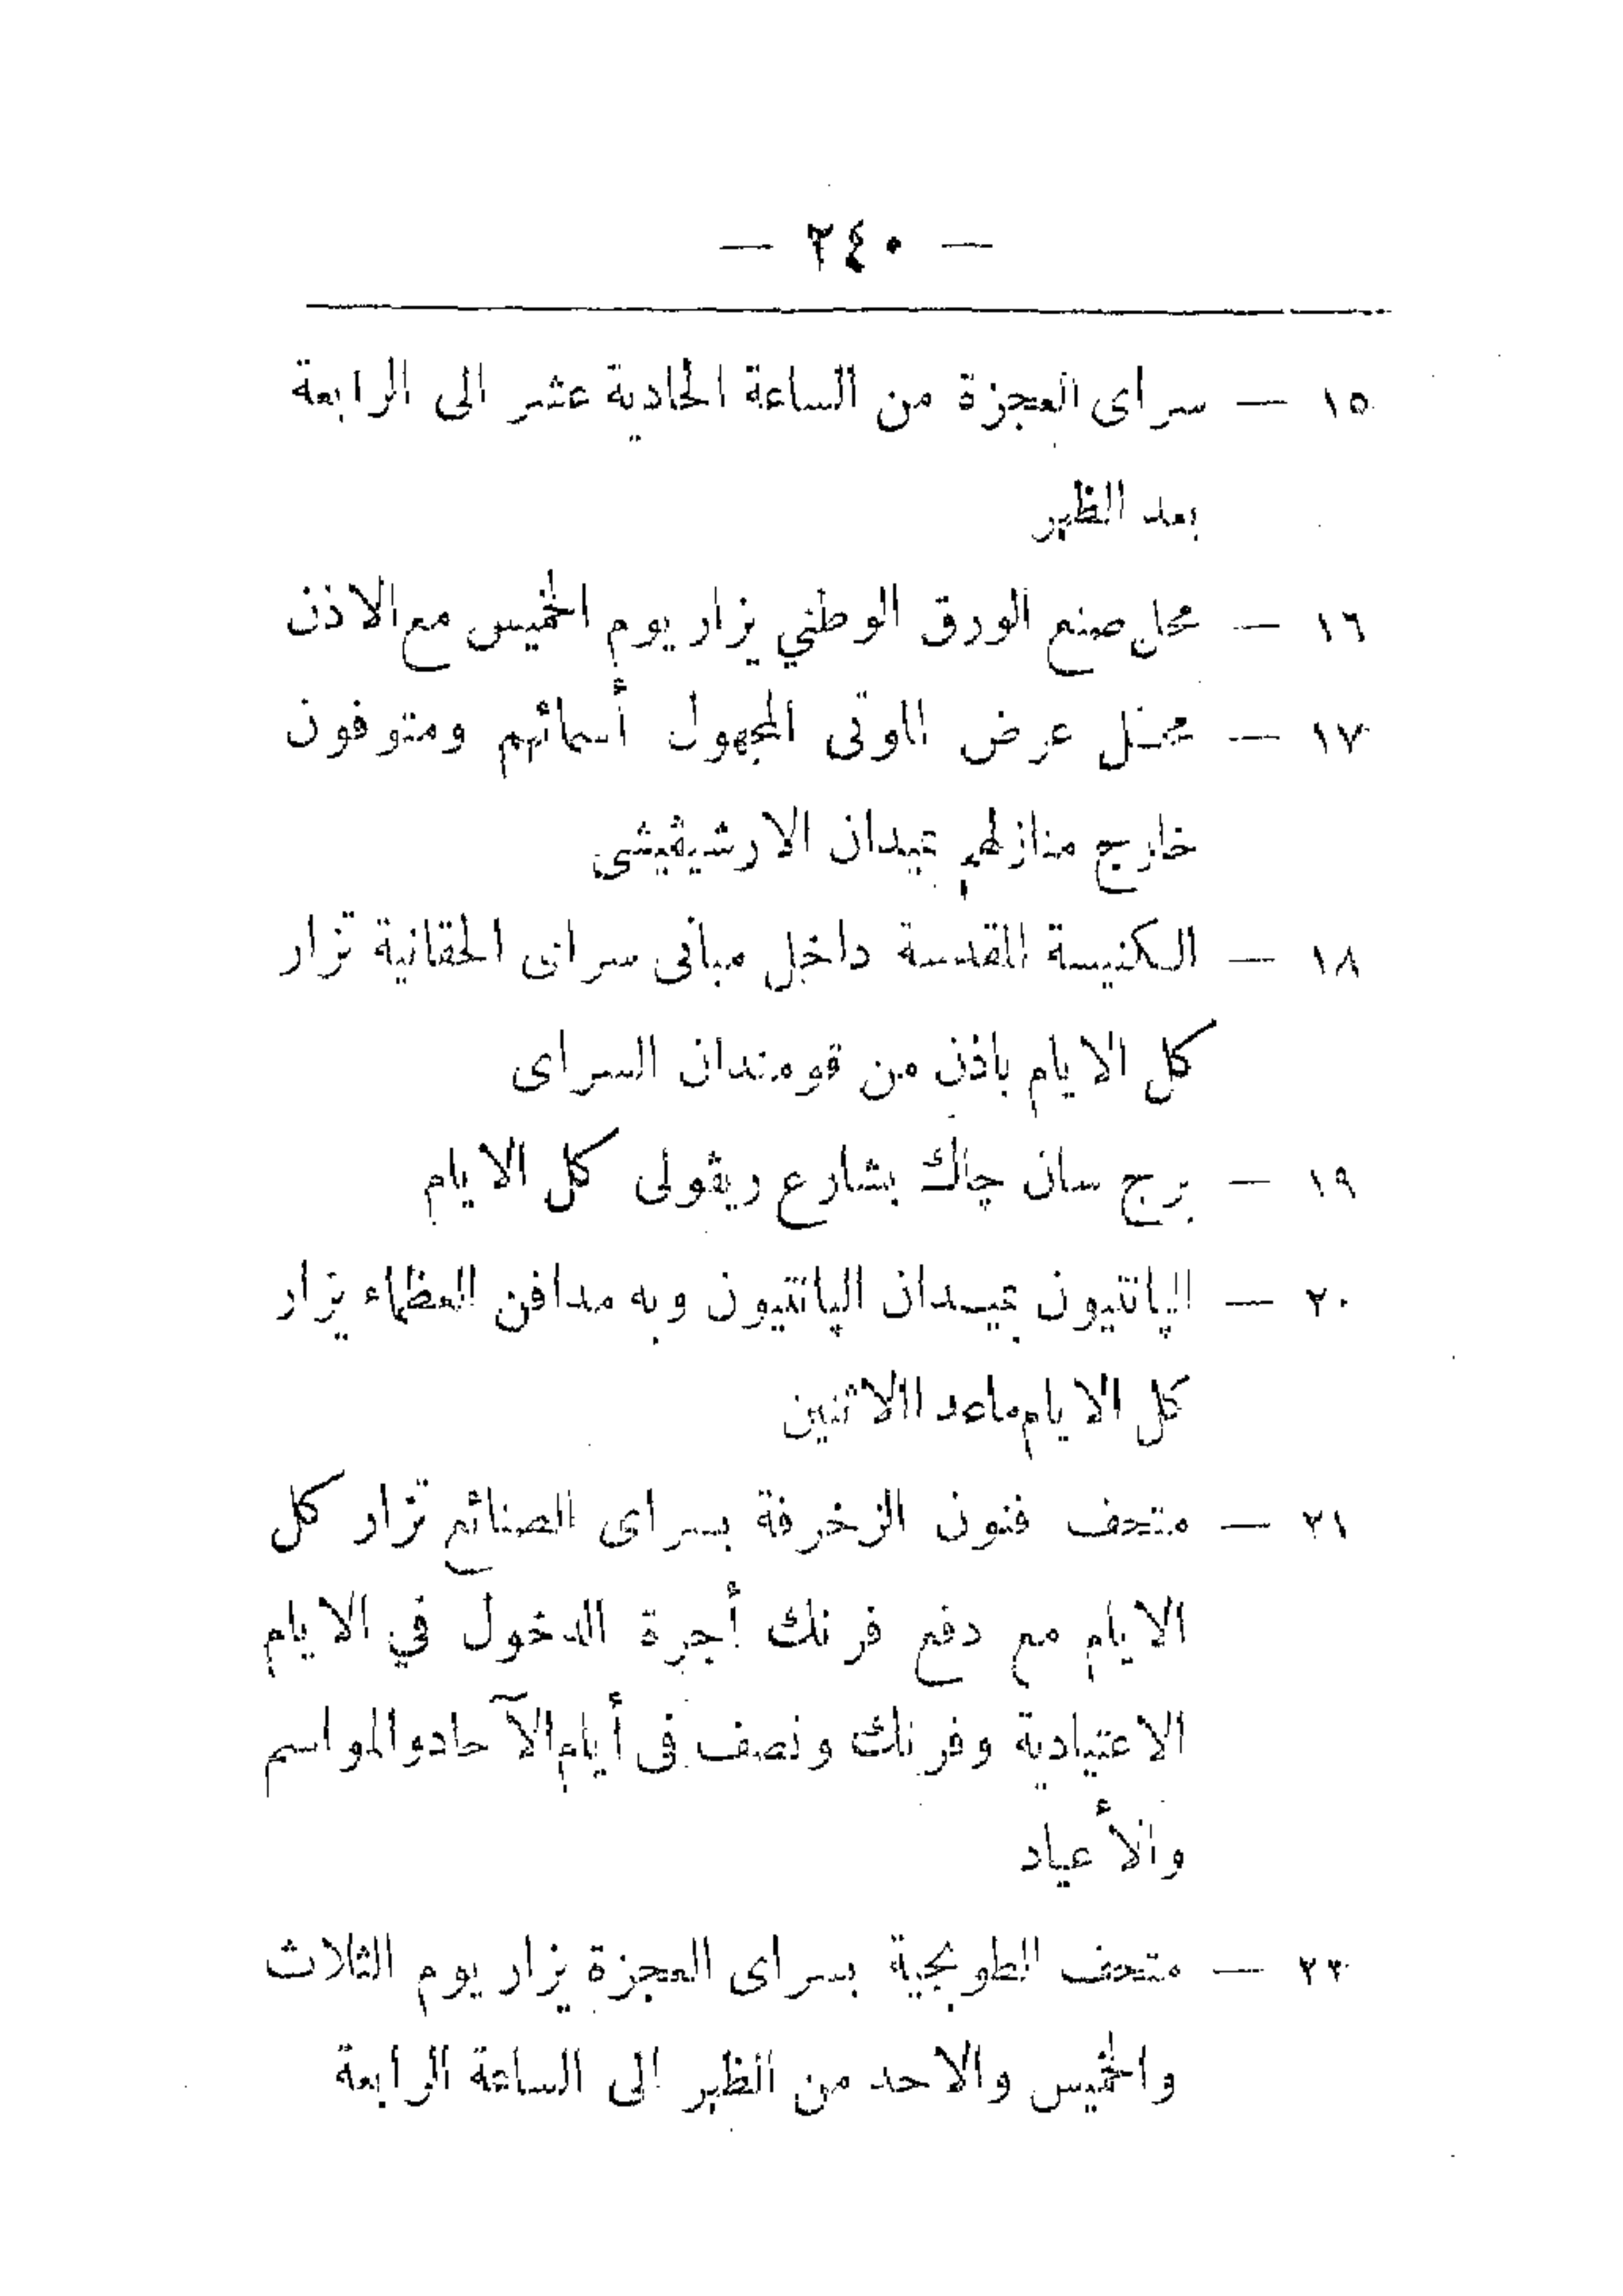 — ٢٤٠ —
١٥ — سراى العجزة من الساعة الحادية عشر الى الرابعة
بعد الظهر
١٦ — محل صنع الورق الوطني يزار يوم الخميس مع الاذن
١٧ — محل عرض الموتى المجهول أسمائهم ومتوفون
خارج منازلهم بميدان الارشيڤيشى
١٨ — الكنيسة المقدسة داخل مبانى سراى الحقانية تزار
كل الايام باذن من قومندان السراى
١٩ — برج سان چاك بشارع ريڤولى كل الايام
٢٠ — الپانتيون بميدان الپانتيون وبه مدافن العظماء يزار
كل الايام ماعدا الاثنين
٢١ — متحف فنون الزخرفة بسراى الصنائع تزار كل
الايام مع دفع فرنك أجرة الدخول في الايام
الاعتيادية وفرنك ونصف فى أيام الآحاد والمواسم
والأعياد
٢٢ — متحف الطوبجية بسراى العجزة يزار يوم الثلاث
والخميس والاحد من الظهر الى الساعة الرابعة